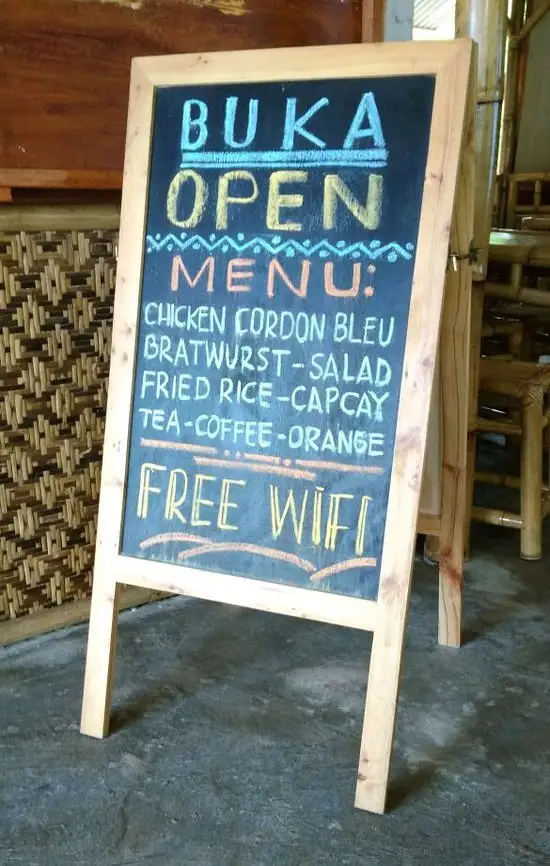 BUKA
OPEN
MENU:
CHICKEN CORDON BLEU
BRATWURST-SALAD
FRIED RICE-CAPCAY
TEA-COFFEE-ORANGE
FREE WIFI